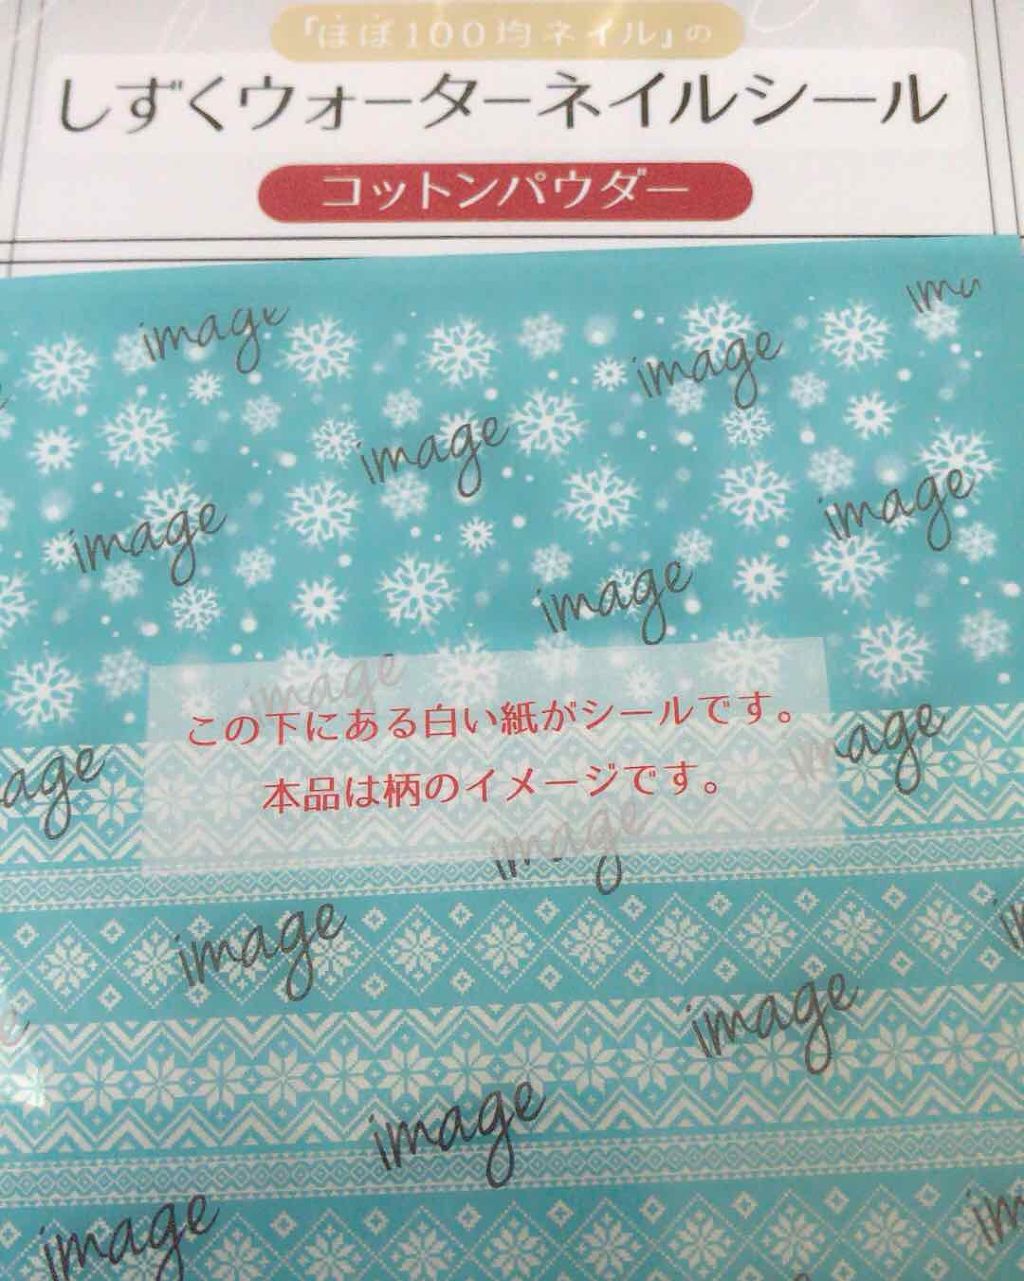 「ほぼ100均ネイル」の
しずくウォーターネイルシール
コットンパウダー
image
image
image
image
image
image
image
image
この下にある白い紙がシールです。
本品は柄のイメージです。
image
image
image
image
image
image
image